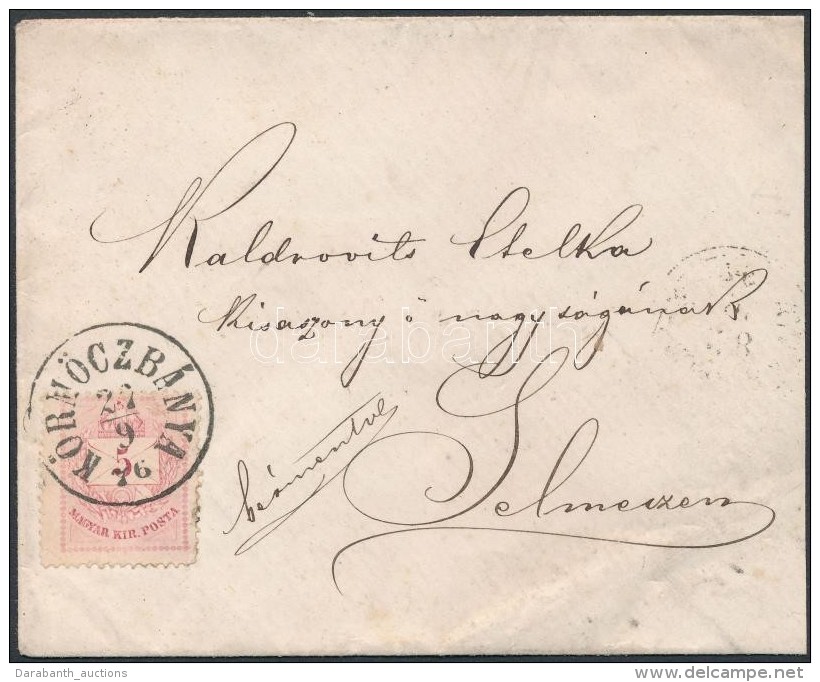 Kaldrovits Etelka
kisaszony ő nagyságának
bérmentve
Selmeczen
KÖRMÖCZBÁNYA
27
9
76
5
MAGYAR KIR. POSTA
darabanth
Darabanth_auctions
delcampe.net